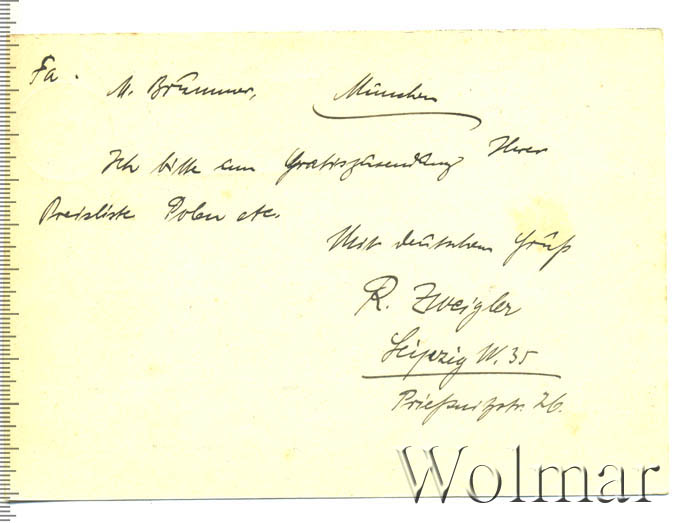 Fa.
M. Brümmer, München
Ich bitte um Gratiszusendung Ihrer
Preisliste Polen etc.
Mit deutschem Gruß
R. Zweigler
Leipzig W. 35
Prießnitzstr. 26.
Wolmar